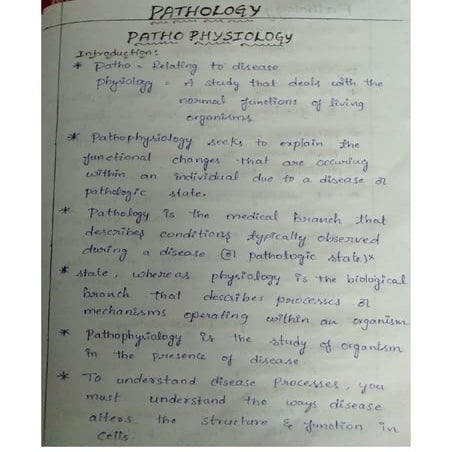 PATHOLOGY
PATHO PHYSIOLOGY
Introduction:
* Patho = Relating to disease
Physiology = A study that deals with the
normal functions of living
organisms
* Pathophysiology seeks to explain the
functional changes that are occuring
within an individual due to a disease or
pathologic state.
* Pathology is the medical branch that
describes conditions typically observed
during a disease (or pathologic state)*
* state, whereas physiology is the biological
branch that describes processes or
mechanisms operating within an organism
* Pathophysiology is the study of organism
in the presence of disease
* To understand disease Processes, you
must understand the ways disease
alters the structure & function in
cells